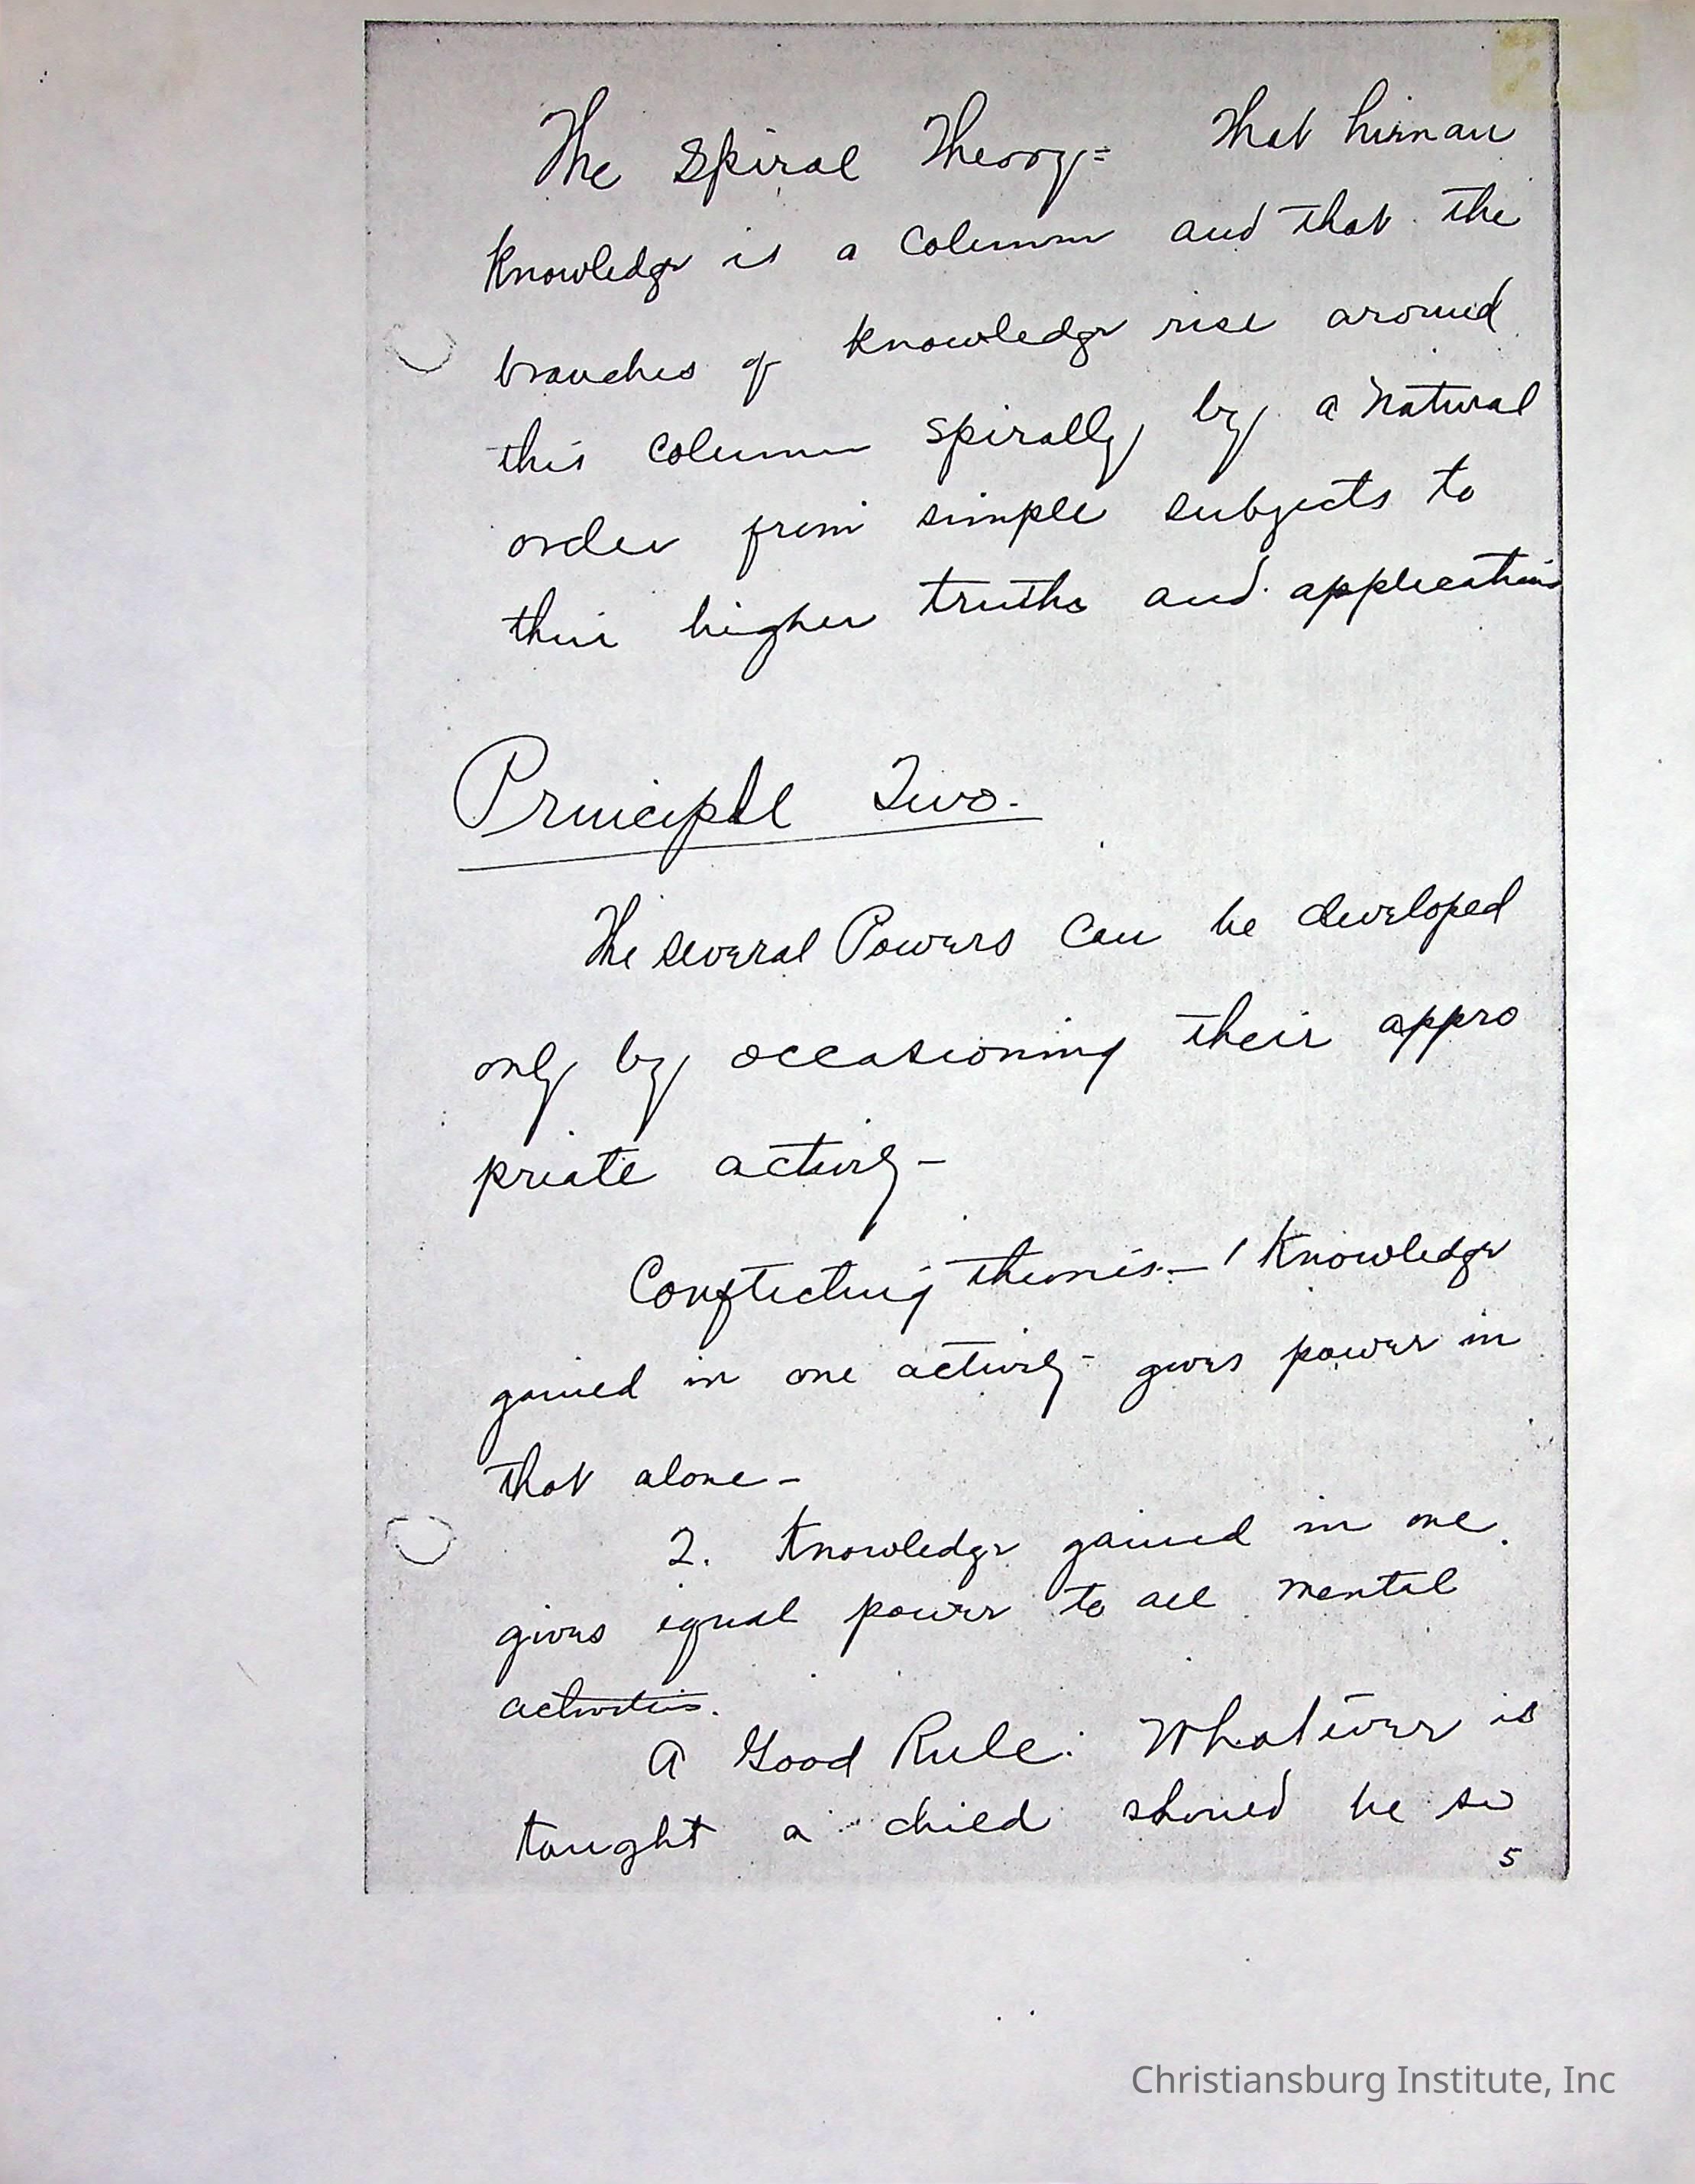 The Spiral Theory = That human
Knowledge is a Column and that the
branches of knowledge rise around
this column spirally, by a natural
order from simple subjects to
their higher truths and applications
Principle Two.
The several Powers can be developed
only by occasioning their appro
priate activity -
Conflicting theories - 1 Knowledge
gained in one activity - gives power in
that alone -
2. Knowledge gained in one
gives equal power to all mental
activities.
A Good Rule: Whatever is
taught a child should be so
5
Christiansburg Institute, Inc